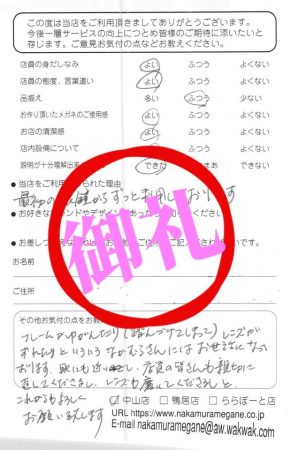 この度は当店をご利用頂きましてありがとうございます。
今後一層サービスの向上につとめ皆様のご期待に添いたいと
存じます。ご意見お気付の点などお教えください。
店員の身だしなみ よい ふつう よくない
店員の態度、言葉遣い よい ふつう よくない
品揃え 多い ふつう 少ない
お作り頂いたメガネのご使用感 よい ふつう よくない
お店の清潔感 よい ふつう よくない
店内設備について よい ふつう よくない
説明が十分理解出来 できた できない
●当店をご利用 れた理由
最初の からずっと利用しております
●お好きな ンドやデザイン あった
●お差し
お名前
ご住所
御礼
その他お気付の点をお教
フレームがゆがんだり(踏んづけてしまって)レンズが
ずれたりといろいろなかむらさんにはお世話になって
おります。家にも近いし、店員の皆さんも親切に
直してくださるし、レンズも磨いてくださるし、
これからもよろしく
お願い致します
中山店 □鴨居店 □ららぽーと店
URL https://www.nakamuramegane.co.jp
E-mail nakamuramegane@aw.wakwak.com